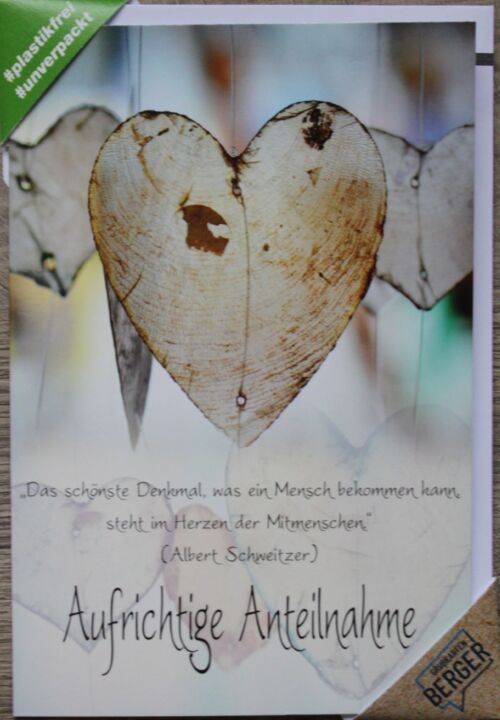 #plastikfrei
#unverpackt
„Das schönste Denkmal, was ein Mensch bekommen kann,
steht im Herzen der Mitmenschen“
(Albert Schweitzer)
Aufrichtige Anteilnahme
GRUSSKARTEN
BERGER